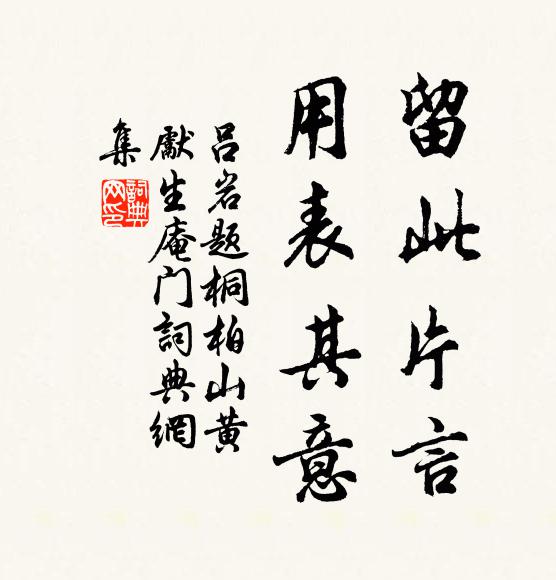 留此片言
用表其意
吕岩题桐柏山黄
獻生庵门詞典網
集
詞典
网印